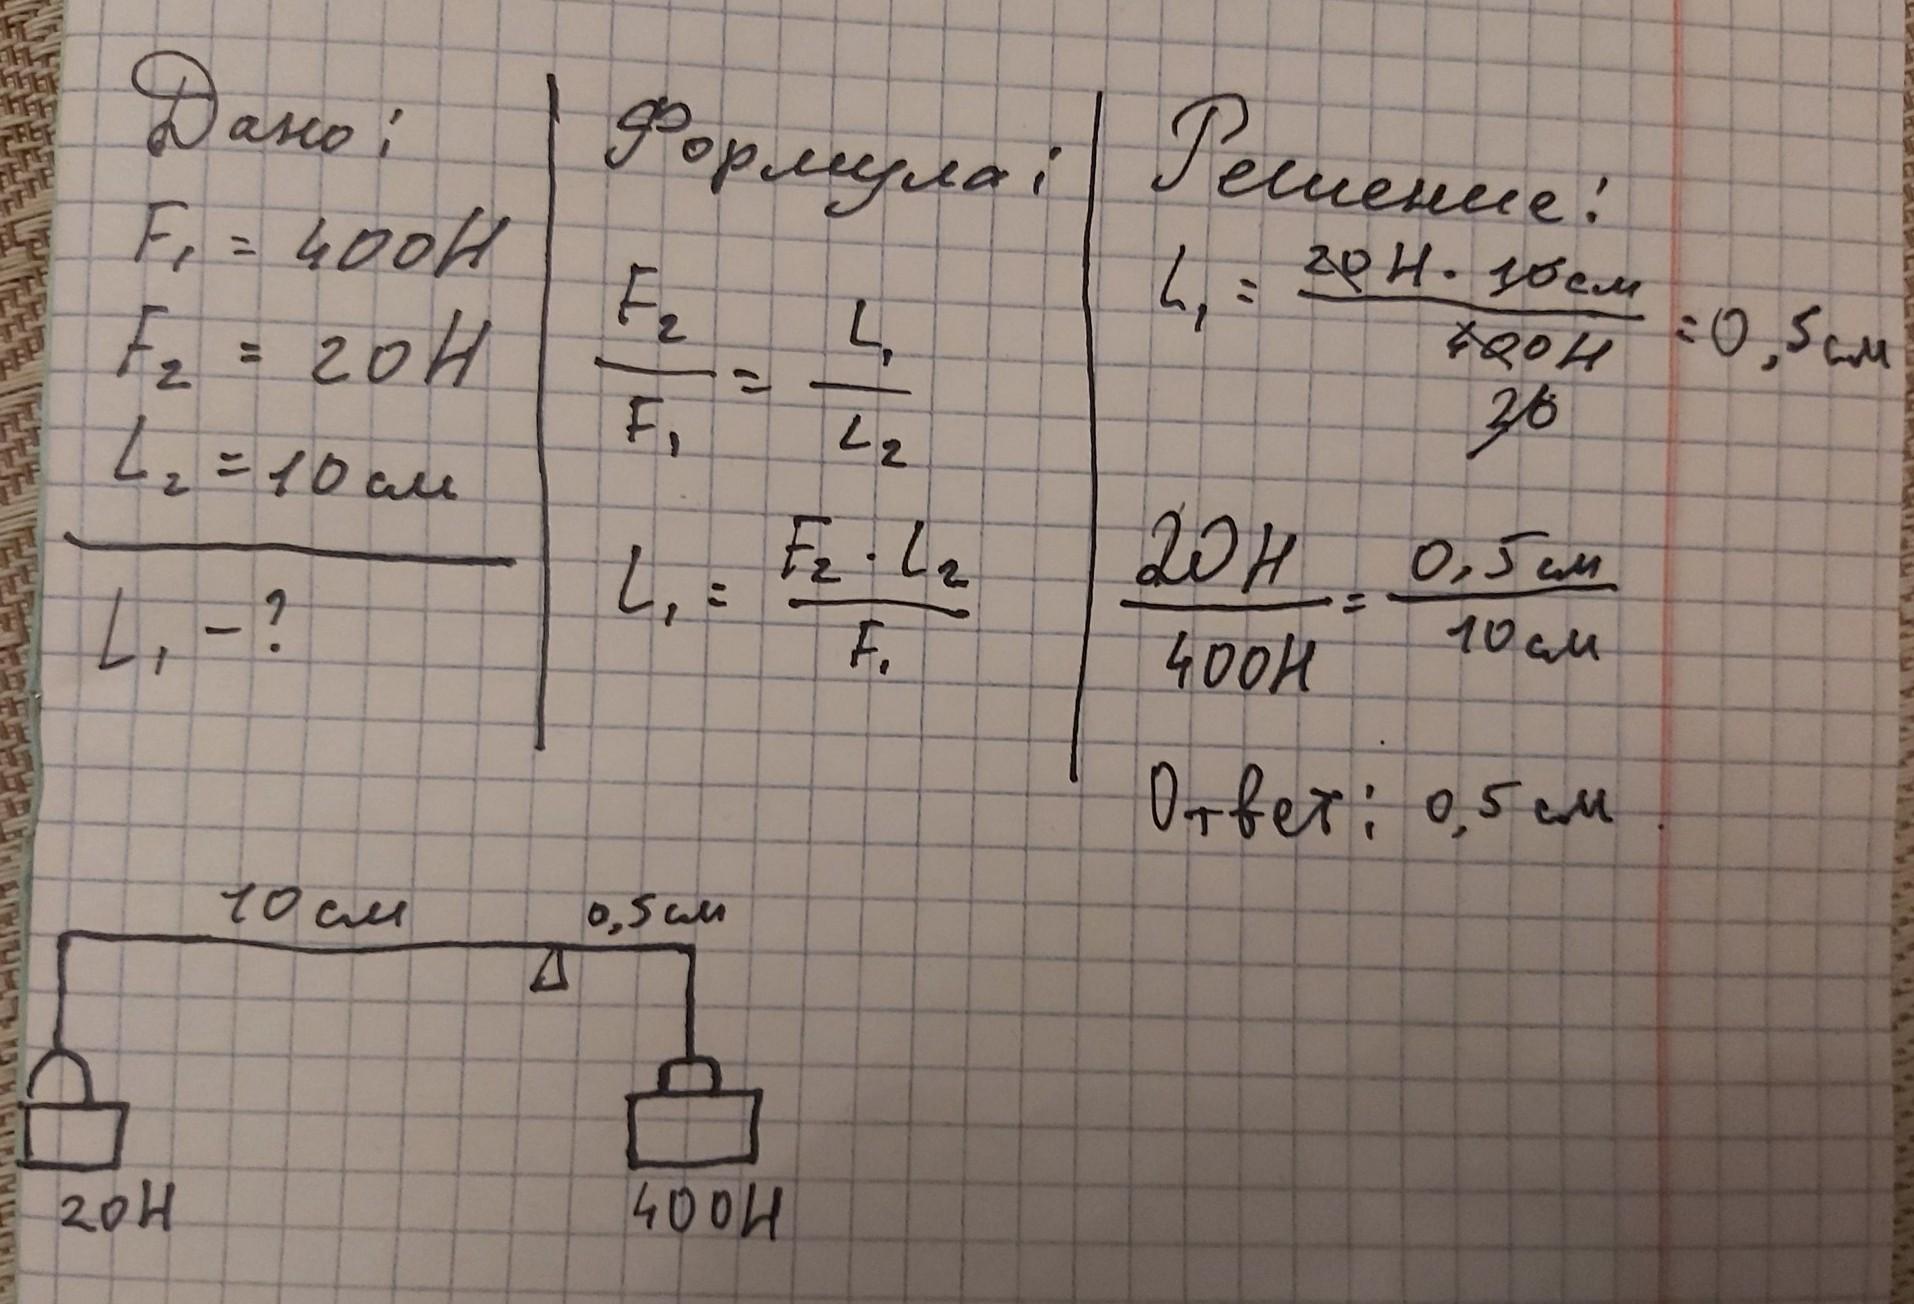 Дано:
F₁ = 400Н
F₂ = 20Н
L₂ = 10 см
L₁ - ?
Формула:
F₂ / F₁ = L₁ / L₂
L₁ = F₂ · L₂ / F₁
Решение:
L₁ = 20Н · 10см / 400Н = 0,5см
20
20Н / 400Н = 0,5см / 10см
Ответ: 0,5 см.
10 см 0,5 см
20Н 400Н